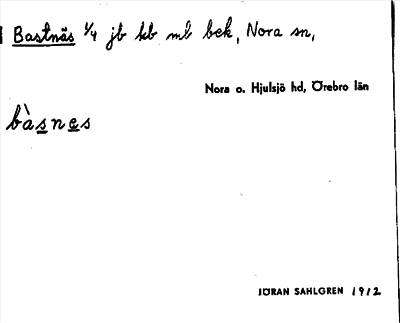 Bastnäs ¼ jb kb ml bek, Nora sn,
Nora o. Hjulsjö hd, Örebro län
bàsnes
JÖRAN SAHLGREN 1912